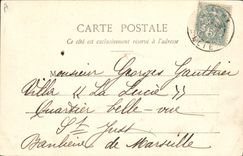 CARTE POSTALE
Ce côté est exclusivement réservé à l'adresse
Monsieur Georges Gauthier
Villa "La Luca"
Quartier belle-vue
St Just
Banlieue de Marseille